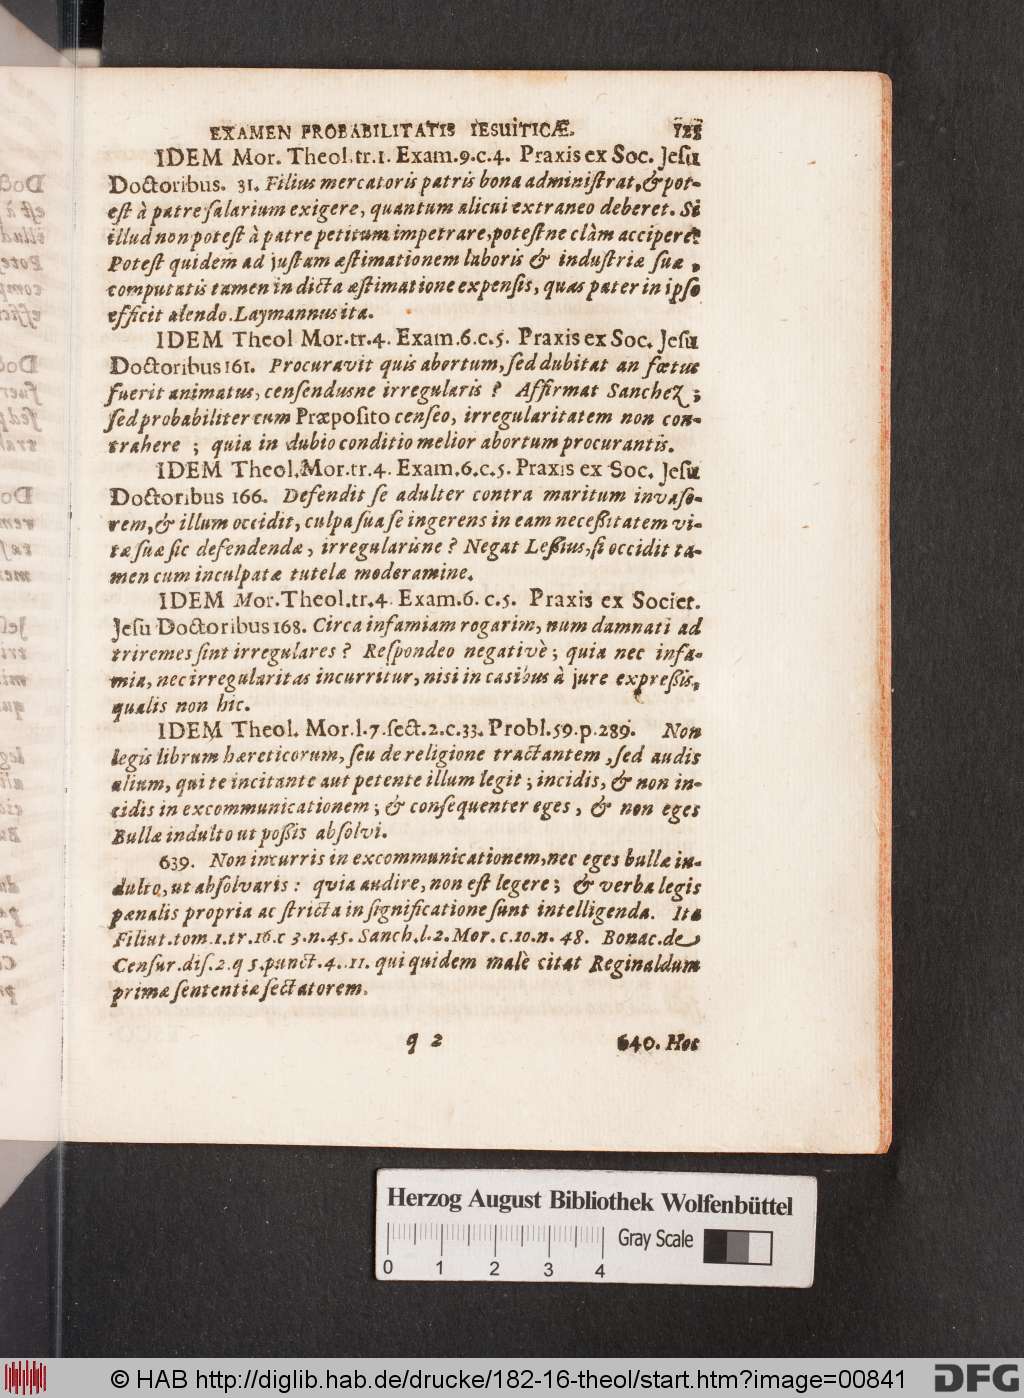 EXAMEN PROBABILITATIS IESUITICÆ. 123
IDEM Mor. Theol. tr. 1. Exam. 9. c. 4. Praxis ex Soc. Jeſu
Doctoribus. 31. Filius mercatoris patris bona adminiſtrat, & pot-
eſt à patre ſalarium exigere, quantum alicui extraneo deberet. Si
illud non poteſt à patre petitum impetrare, poteſtne clàm accipere?
Poteſt quidem ad juſtam æſtimationem laboris & induſtriæ ſuæ,
computatis tamen in dicta æſtimatione expenſis, quas pater in ipſo
efficit alendo. Laymannus ita.
IDEM Theol Mor. tr. 4. Exam. 6. c. 5. Praxis ex Soc. Jeſu
Doctoribus 161. Procuravit quis abortum, ſed dubitat an fœtus
fuerit animatus, cenſendusne irregularis? Affirmat Sanchez;
ſed probabiliter cum Præpoſito cenſeo, irregularitatem non con-
trahere; quia in dubio conditio melior abortum procurantis.
IDEM Theol. Mor. tr. 4. Exam. 6. c. 5. Praxis ex Soc. Jeſu
Doctoribus 166. Defendit ſe adulter contra maritum invaſo-
rem, & illum occidit, culpa ſua ſe ingerens in eam neceßitatem vi-
tæ ſuæ ſic defendendæ, irregularisne? Negat Leßius, ſi occidit ta-
men cum inculpatæ tutelæ moderamine.
IDEM Mor. Theol. tr. 4. Exam. 6. c. 5. Praxis ex Societ.
Jeſu Doctoribus 168. Circa infamiam rogarim, num damnati ad
triremes ſint irregulares? Reſpondeo negativè; quia nec infa-
mia, nec irregularitas incurritur, niſi in caſibus à jure expreßis,
qualis non hic.
IDEM Theol. Mor. l. 7. ſect. 2. c. 33. Probl. 59. p. 289. Non
legis librum hæreticorum, ſeu de religione tractantem, ſed audis
alium, qui te incitante aut petente illum legit; incidis, & non in-
cidis in excommunicationem; & conſequenter eges, & non eges
Bullæ indulto ut poßis abſolvi.
639. Non incurris in excommunicationem, nec eges bullæ in-
dulto, ut abſolvaris: quia audire, non eſt legere; & verba legis
pænalis propria ac ſtricta in ſignificatione ſunt intelligenda. Ita
Filiut. tom. 1. tr. 16. c 3. n. 45. Sanch. l. 2. Mor. c. 10. n. 48. Bonac. de
Cenſur. diſ. 2. q 5. punct. 4. 11. qui quidem malè citat Reginaldum
primæ ſententiæ ſectatorem.
q 2 640. Hoc
Herzog August Bibliothek Wolfenbüttel
Gray Scale
0 1 2 3 4
© HAB http://diglib.hab.de/drucke/182-16-theol/start.htm?image=00841 DFG